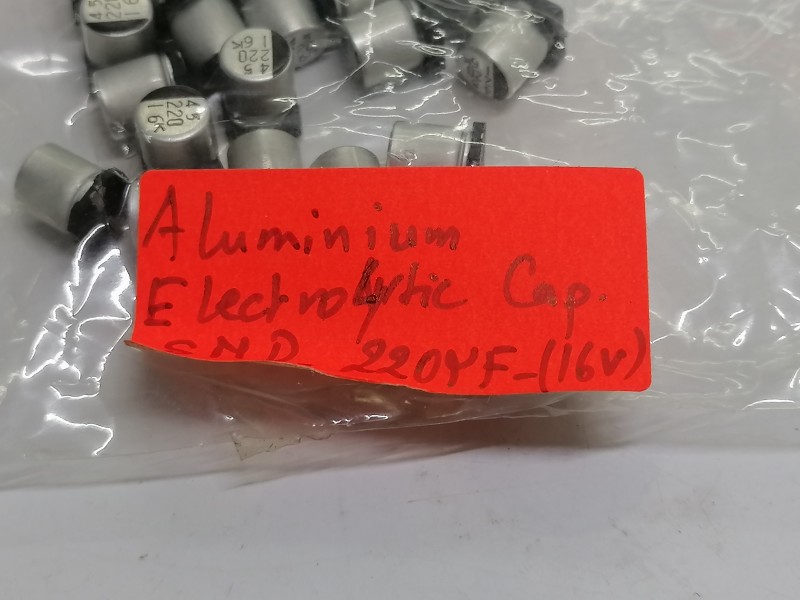 45
220
16K
45
220
16K
Aluminium
Electrolytic Cap.
SMD 220µF-(16V)